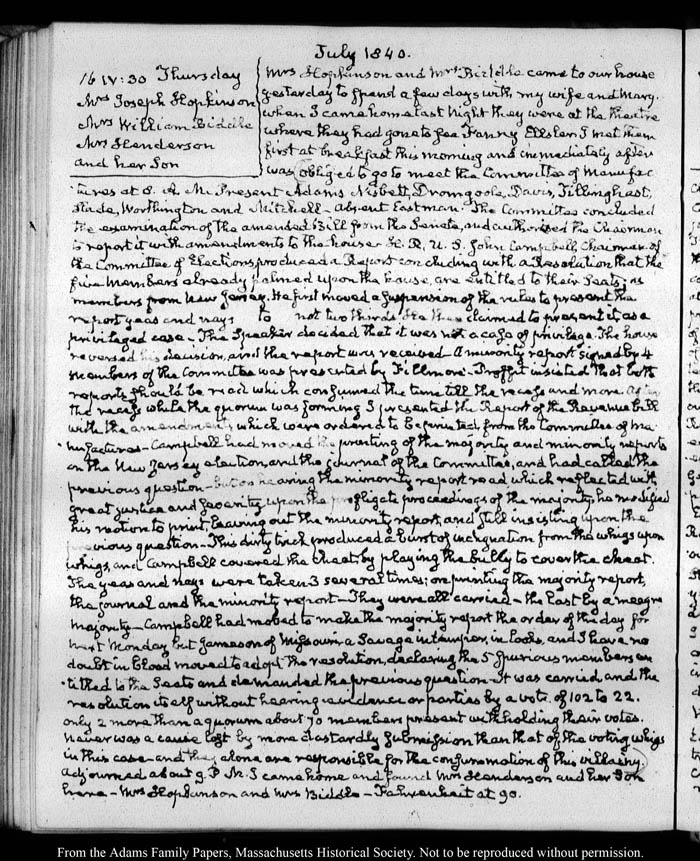 July 1840.
16 IV:30 Thursday
Mrs Joseph Hopkinson
Mrs William Biddle
Mrs Henderson
and her Son
Mrs Hopkinson and Mrs Biddle came to our house
yesterday to spend a few days with my wife and Mary.
When I came home last night they were at the theatre
where they had gone to see Fanny Elssler I met them
first at breakfast this morning and immediately after
was obliged to go to meet the Committee of Manufac
tures at 8. A. M. Present Adams Nisbett, Dromgoole, Davis, Tillinghast,
Slade, Worthington and Mitchell - absent Eastman. The Committee concluded
the examination of the amended Bill from the Senate, and authorised the Chairman
to report it with amendments to the house. H. R. U. S. John Campbell, Chairman of
the Committee of Elections, produced a Report concluding with a Resolution that the
five Members already palmed upon the house, are entitled to their Seats, as
members from New Jersey. He first moved a suspension of the rules to present the
report yeas and nays to not two thirds. He then claimed to present it as a
privileged case - The Speaker decided that it was not a case of privilege. The house
reversed his decision, and the report was received - A minority report signed by 4
members of the Committee was presented by Fillmore - Proffit insisted that both
reports should be read which consumed the time till the recess and more. After
the recess while the quorum was forming I presented the Report of the Revenue bill
with the amendments which were ordered to be printed, from the Committee of Ma
nufactures - Campbell had moved the printing of the majority and minority reports
on the New Jersey election, and the journal of the Committee, and had called the
previous question - but on hearing the minority report read which reflected with
great justice and severity upon the profligate proceedings of the majority, he modified
his motion to print, leaving out the minority report, and still insisting upon the
previous question - This dirty trick produced a burst of indignation from the whigs upon
whigs, and Campbell covered the cheat by playing the bully to cover the cheat.
The yeas and nays were taken 3 several times; on printing the majority report,
the journal and the minority report - They were all carried - the last by a meagre
majority - Campbell had moved to make the majority report the order of the day for
next Monday but Jameson of Missouri a Savage in temper, in looks, and I have no
doubt in blood moved to adopt the resolution, declaring the 5 spurious members en
titled to the Seats and demanded the previous question - It was carried and the
resolution itself without hearing evidence or parties by a vote of 102 to 22.
only 2 more than a quorum about 70 members present withholding their votes.
Never was a cause lost by more dastardly submission than that of the voting whigs
in this case - and they alone are responsible for the consummation of this villainy.
Adjourned about 9. P. M. I came home and found Mrs Henderson and her Son
here - Mrs Hopkinson and Mrs Biddle - Fahrenheit at 90.
From the Adams Family Papers, Massachusetts Historical Society. Not to be reproduced without permission.